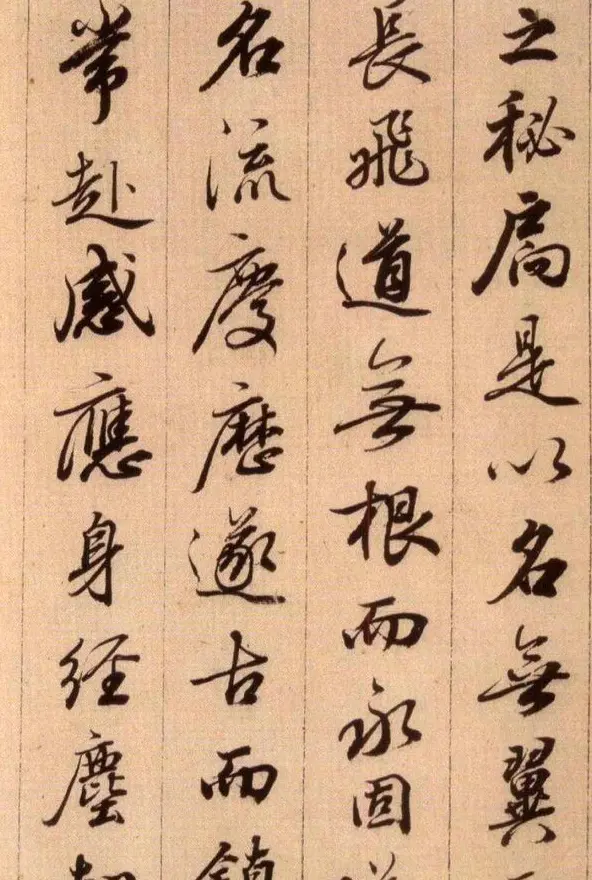 之秘扃是以名無翼
長飛道無根而永固
名流慶歷遂古而鎮
常赴感應身經塵